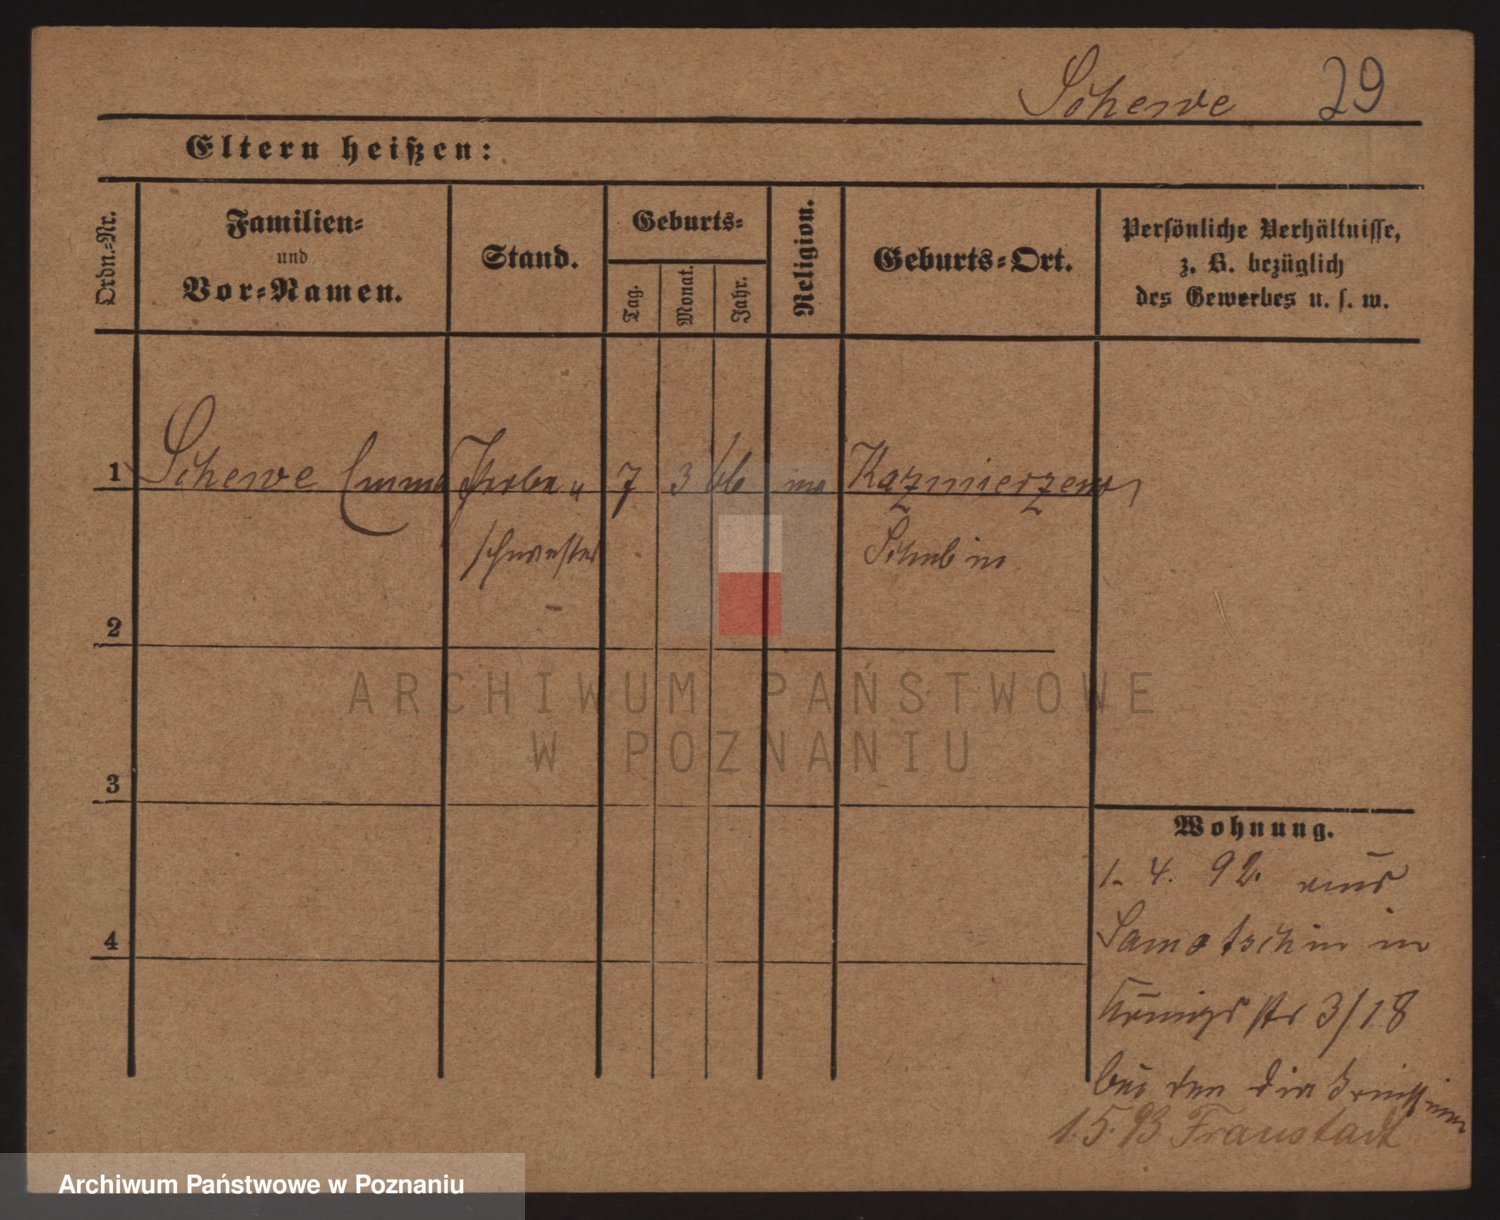 Schewe 29
Eltern heißen:
Ordn.-Nr.
Familien-
und
Vor-Namen.
Stand.
Geburts-
Tag.
Monat.
Jahr.
Religion.
Geburts-Ort.
Persönliche Verhältnisse,
z. B. bezüglich
des Gewerbes u. s. w.
1 Schewe Emma Probe 7 3 66 Kazmierzewo
schwester Schubin
2
3
4
Wohnung.
1. 4. 92. aus
Samotschin in
Königsstr 3/18
bei den Diakonissinnen
1.5.93 Fraustadt
ARCHIWUM PAŃSTWOWE
W POZNANIU
Archiwum Państwowe w Poznaniu